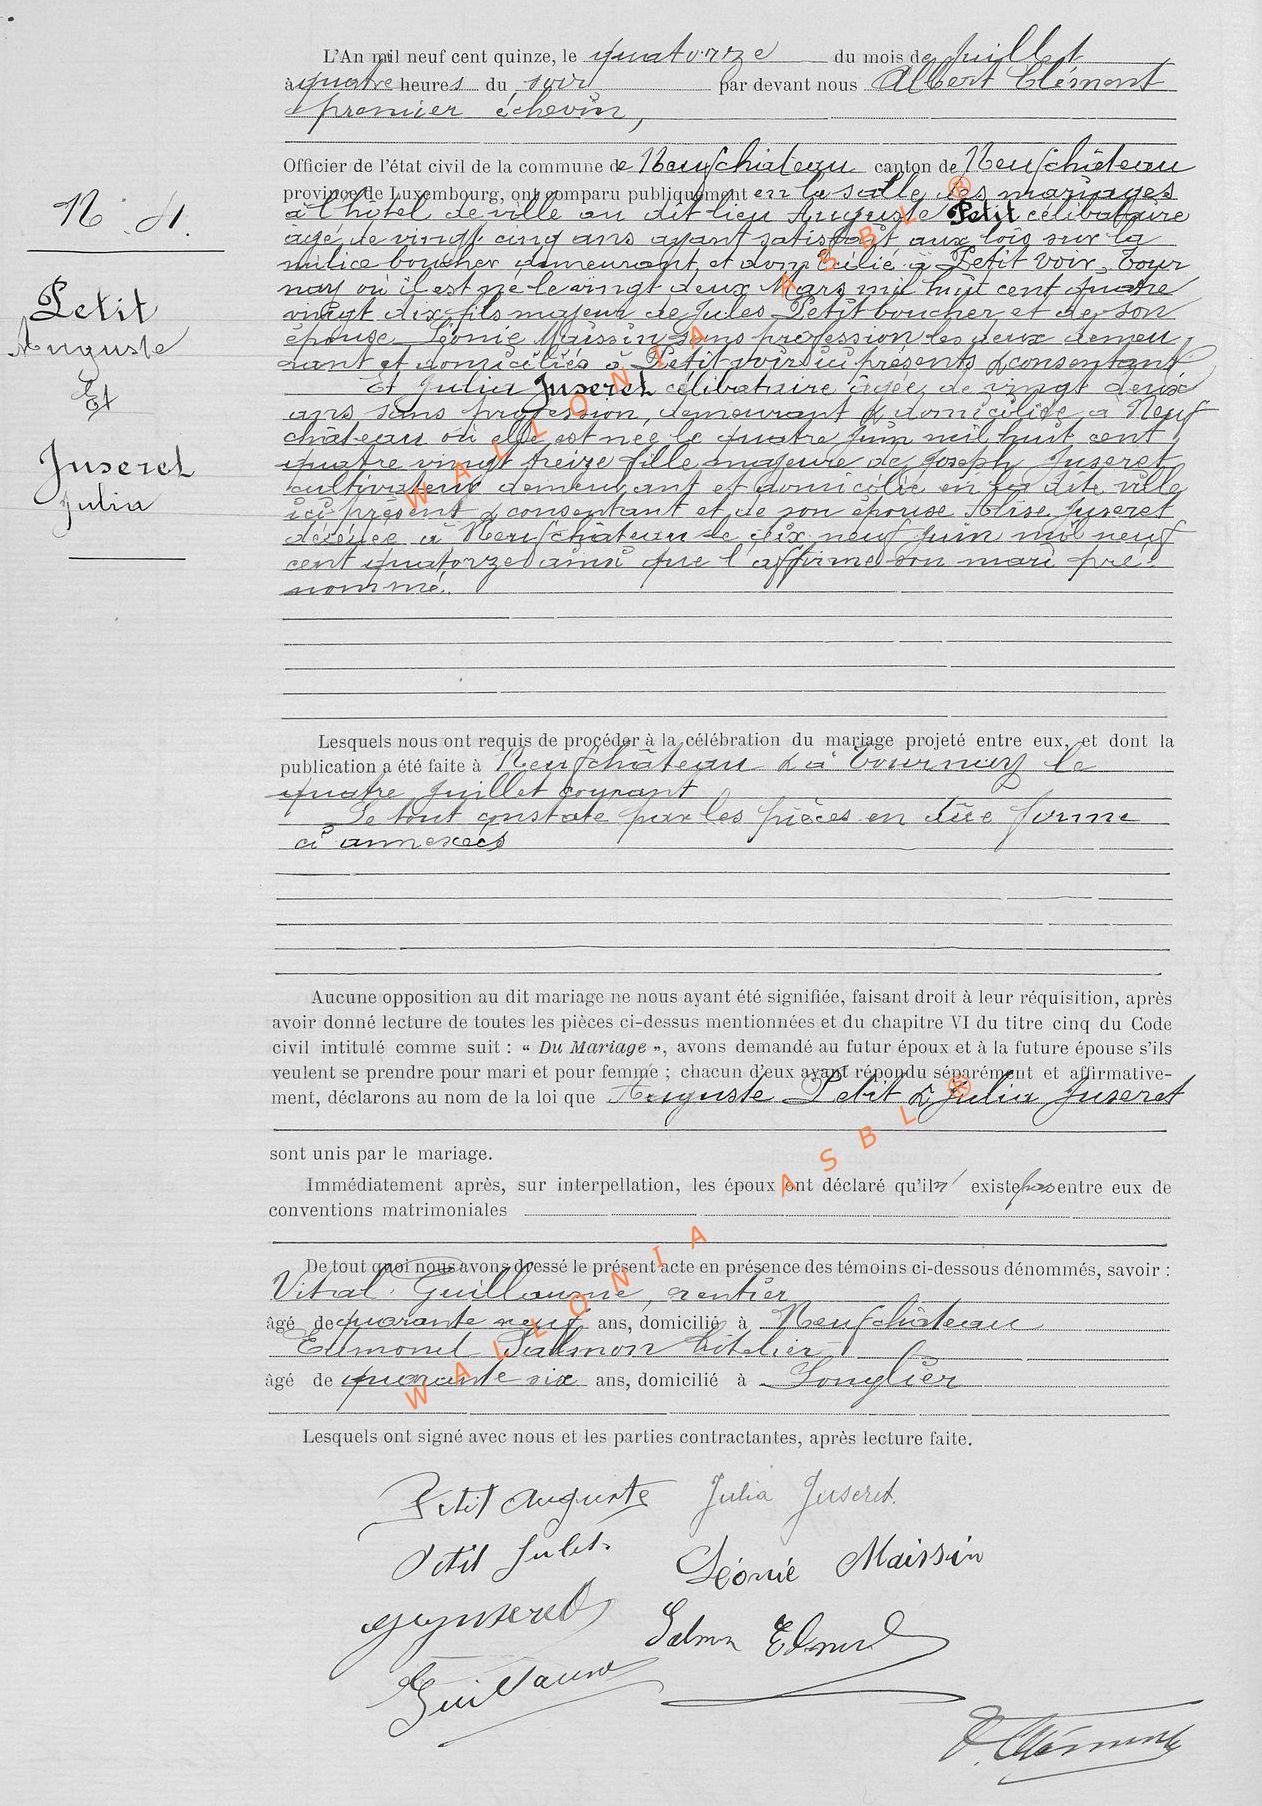 L'An mil neuf cent quinze, le quatorze du mois de juillet
à quatre heures du soir par devant nous Albert Clément
premier échevin,
Officier de l'état civil de la commune de Neufchâteau canton de Neufchâteau
province de Luxembourg, ont comparu publiquement en la salle des mariages
à l'hôtel de ville au dit lieu Auguste Petit célibataire
âgé de vingt cinq ans ayant satisfait aux lois sur la
milice boucher demeurant et domicilié à Petit Voir, Tour
nay où il est né le vingt deux Mars mil huit cent quatre
vingt dix fils majeur de Jules Petit boucher et de son
épouse Léonie Maissin sans profession les deux demeu
rant et domiciliés à Petit-voir ici présents & consentant
Et Julia Juseret célibataire âgée de vingt deux
ans sans profession, demeurant & domiciliée à Neuf
château où elle est née le quatre Juin mil huit cent
quatre vingt treize fille majeure de Joseph Juseret
cultivateur demeurant et domicilié en la dite ville
ici présent & consentant et de son épouse Juseret
décédée à Neufchâteau le dix neuf Juin mil neuf
cent quatorze ainsi que l'affirme son mari pré
nommé.
N. 4.
Petit
Auguste
Et
Juseret
Julia
Lesquels nous ont requis de procéder à la célébration du mariage projeté entre eux, et dont la
publication a été faite à Neufchâteau & à Tournay le
quatre Juillet courant
Le tout constaté par les pièces en due forme
ci annexées
Aucune opposition au dit mariage ne nous ayant été signifiée, faisant droit à leur réquisition, après
avoir donné lecture de toutes les pièces ci-dessus mentionnées et du chapitre VI du titre cinq du Code
civil intitulé comme suit : « Du Mariage », avons demandé au futur époux et à la future épouse s'ils
veulent se prendre pour mari et pour femme ; chacun d'eux ayant répondu séparément et affirmative-
ment, déclarons au nom de la loi que Auguste Petit & Julia Juseret
sont unis par le mariage.
Immédiatement après, sur interpellation, les époux ont déclaré qu'il n' existe pas entre eux de
conventions matrimoniales
De tout quoi nous avons dressé le présent acte en présence des témoins ci-dessous dénommés, savoir :
Vital Guillaume, rentier
âgé de quarante neuf ans, domicilié à Neufchâteau
Edmond Salmon hôtelier
âgé de quarante six ans, domicilié à Longlier
Lesquels ont signé avec nous et les parties contractantes, après lecture faite.
Petit Auguste Julia Juseret.
Petit Jules. Léonie Maissin
Juseret Salmon Edmond
Guillaume
A. Clément
WALLONIA ASBL ®
WALLONIA ASBL ®